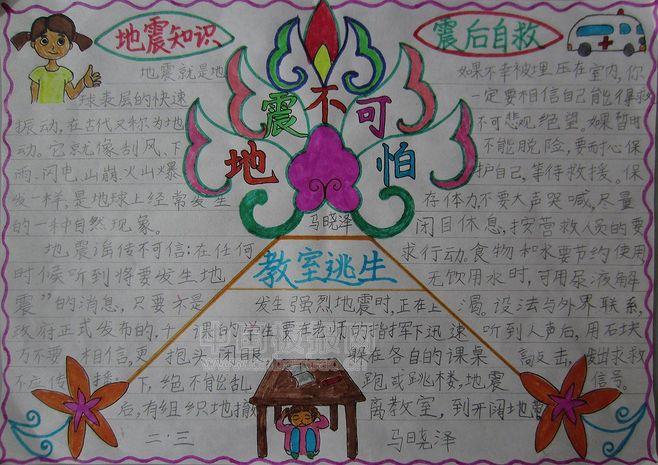 地震知识
地震就是地
球表层的快速
振动,在古代又称为地
动。它就像刮风、下
雨、闪电、山崩、火山爆
发一样,是地球上经常发生
的一种自然现象。
地震谣传不可信:在任何
时候听到将要发生地
震"的消息,只要不是
政府正式发布的,千
万不要 相信,更
不应传 播。
地震不可怕
马晓泽
教室逃生
发生强烈地震时,正在上
课的学生要在老师的指挥下迅速
抱头、闭眼、躲在各自的课桌
下,绝不能乱 跑或跳楼,地震
后,有组织地撤 离教室,到开阔地带
二·三 马晓泽
震后自救
如果不幸被埋压在室内,你
一定要相信自己能得救
不可悲观绝望。如果暂时
不能脱险,要耐心保
护自己,等待救援。保
存体力不要大声哭喊,尽量
闭目休息,按营救人员的要
求行动。食物和水要节约使用
无饮用水时,可用尿液解
渴。设法与外界联系,
听到人声后,用石块
敲击,求救
信号。